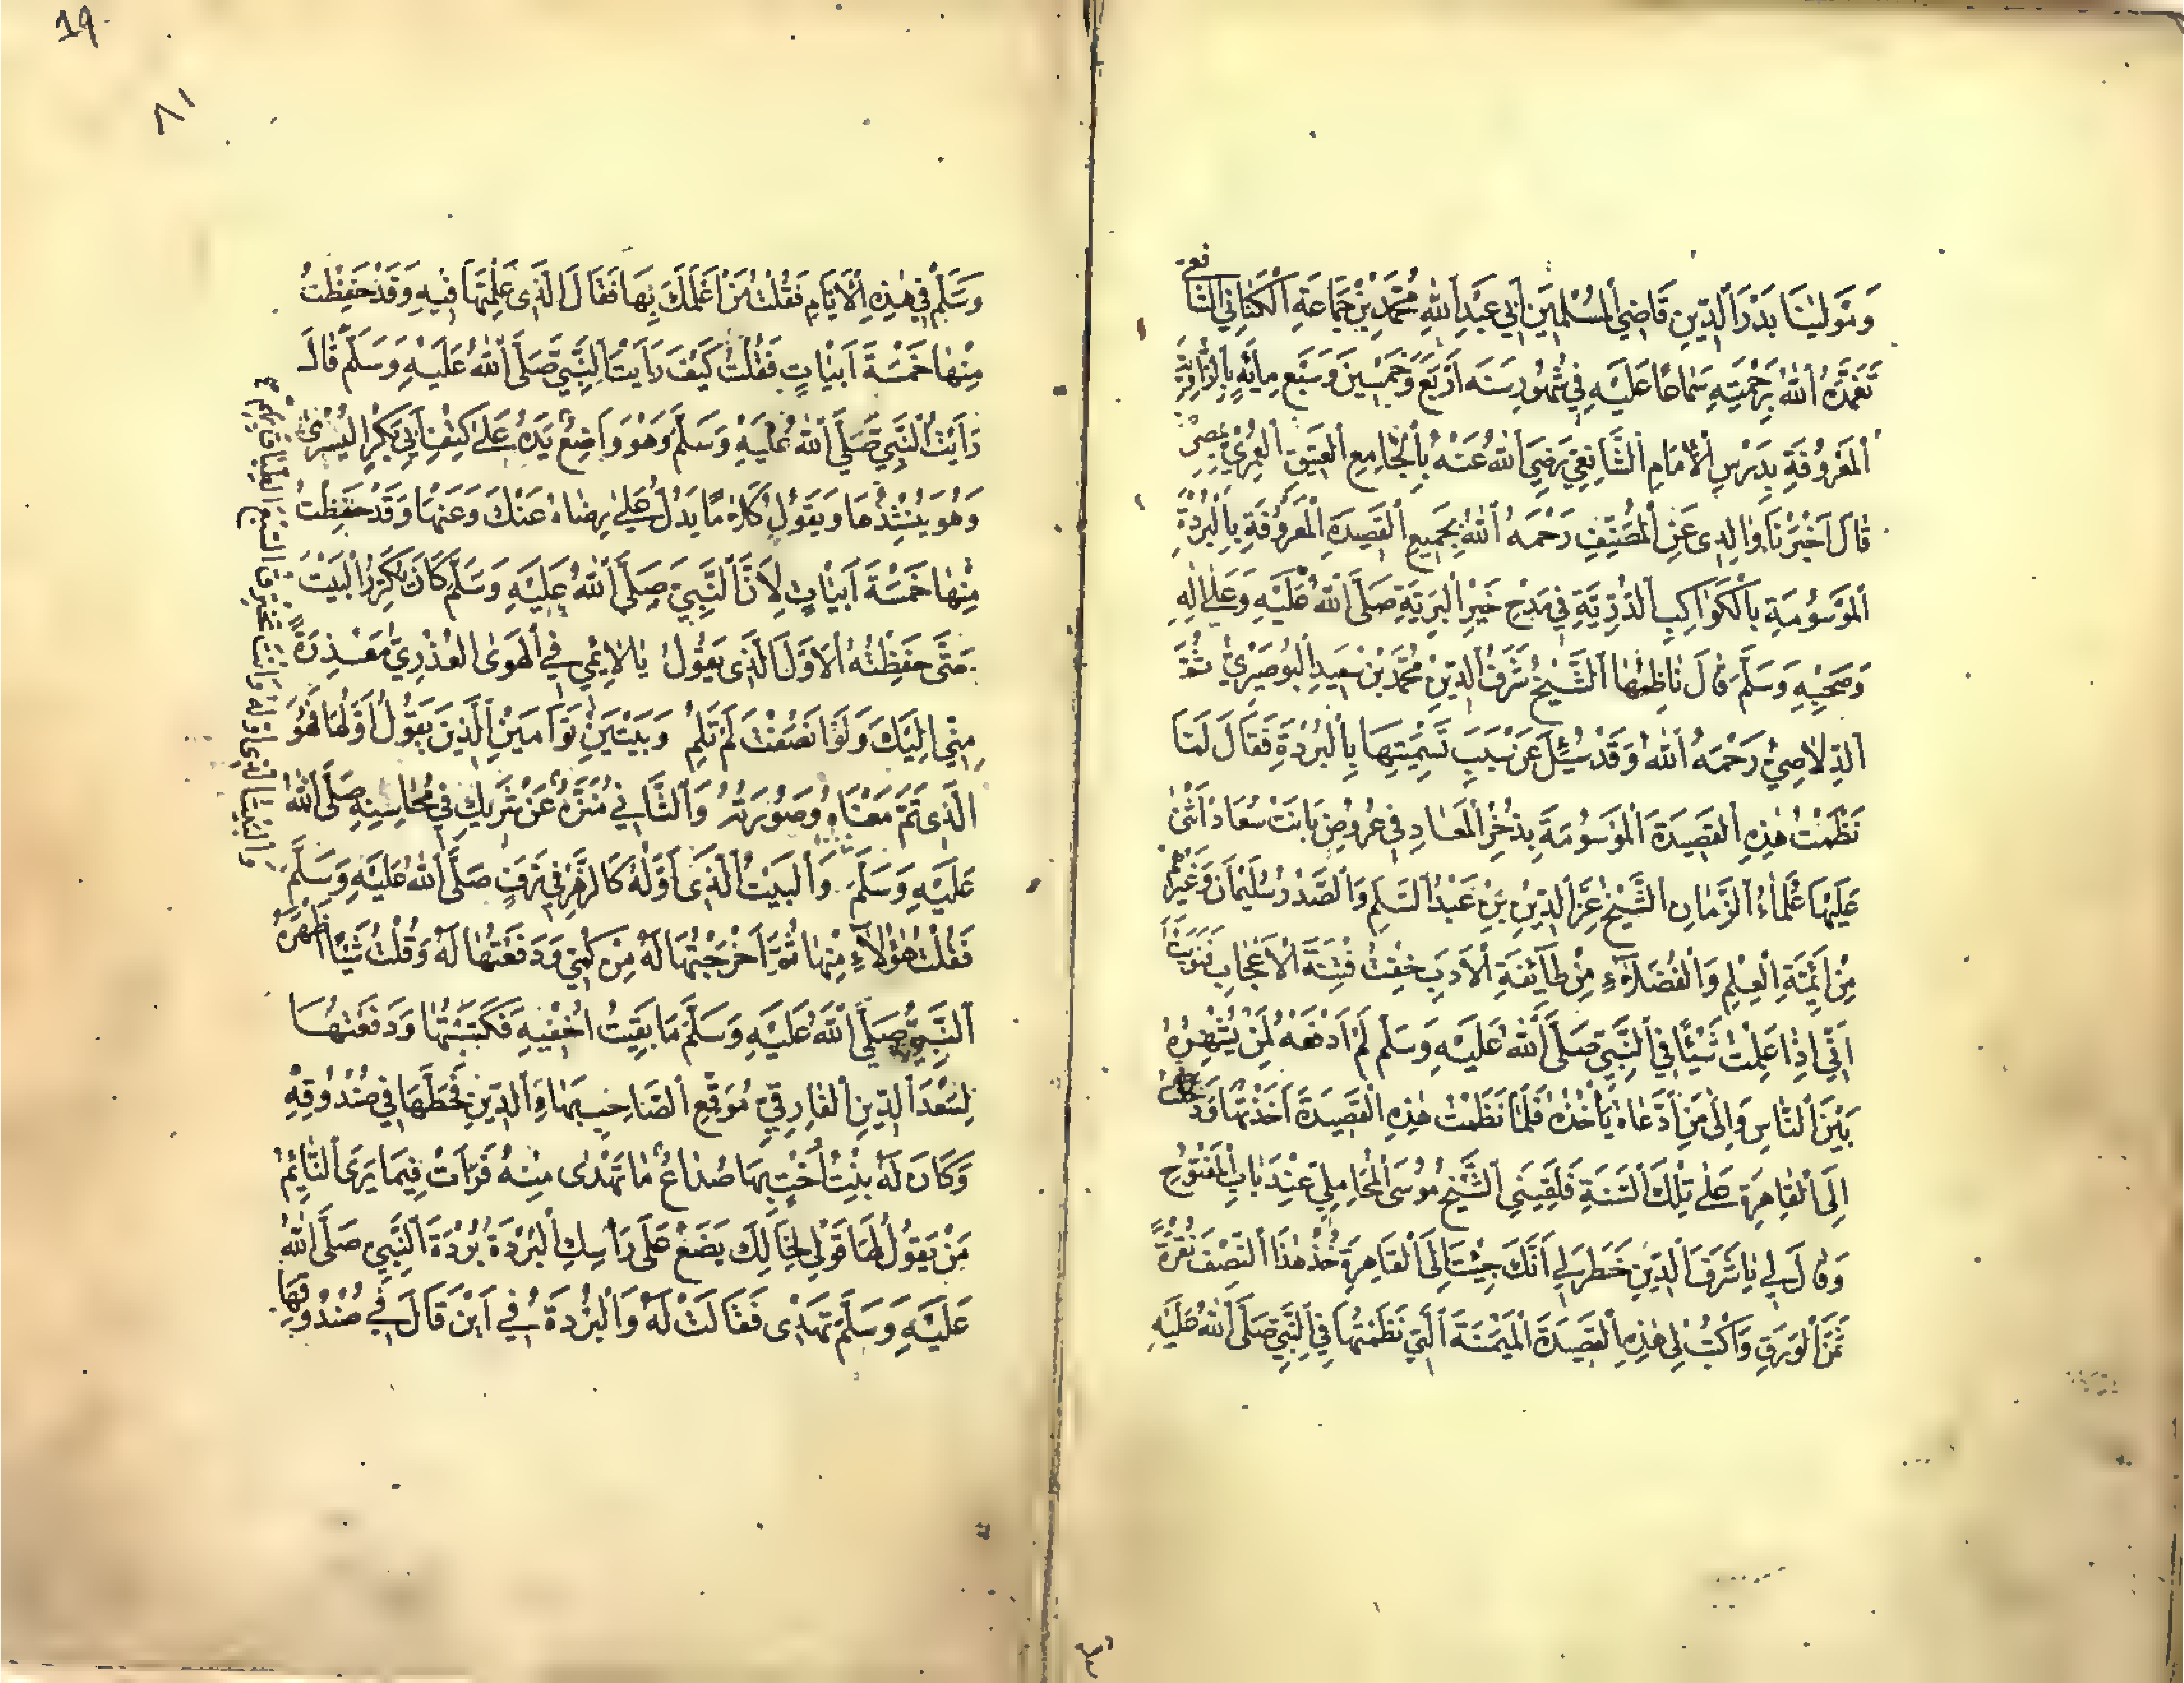 وَمَوْلٰينَا بَدْرَ الدِّينِ قَاضِي الْمُسْلِمِينَ أَبِي عَبْدِ اللهِ مُحَمَّدِ بْنِ جَمَاعَةِ الْكِنَانِي الشَّافِعِي
تَغَمَّدَهُ اللهُ بِرَحْمَتِهِ سَمَاعًا عَلَيْهِ فِي شُهُورِ سَنَه أَرْبَعَ وَخَمْسِينَ وَسَبْعِ مِايَةٍ بِالزَّاوِيَةِ
الْمَعْرُوفَةِ بِدَرْسِ الْاِمَامِ الشَّافِعِي رَضِيَ اللهُ عَنْهُ بِالْجَامِعِ الْعَتِيقِ الْعُمَرِي بِمِصْرَ
قَالَ أَخْبَرَنَا وَالِدِي عَنِ الْمُصَنِّفِ رَحْمَهُ اللهُ بِجَمِيعِ الْقَصِيدَةِ الْمَعْرُوفَةِ بِالْبُرْدَةِ
الْمَوْسُومَةِ بِالْكَوَاكِبِ الدُّرِّيَّةِ فِي مَدْحِ خَيْرِ الْبَرِيَّةِ صَلَّى اللهُ عَلَيْهِ وَعَلٰى اٰلِهِ
وَصَحْبِهِ وَسَلَّمَ قَالَ نَاظِمُهَا الشَّيْخُ شَرَفُ الدِّينِ مُحَمَّدُ بْنُ سَعِيدٍ الْبُوصِيرِيُّ ثُمَّ
الدِّلَاصِيُّ رَحْمَهُ اللهُ وَقَدْ سُئِلَ عَنْ سَبَبِ تَسْمِيَتِهَا بِالْبُرْدَةِ فَقَالَ لَمَّا
نَظَمْتُ هٰذِهِ الْقَصِيدَةَ الْمَوْسُومَةَ بِذُخْرِ الْمَعَادِ فِي عَرُوضِ بَانَتْ سُعَادُ اَثْنٰى
عَلَيْهَا عُلَمَاءُ الزَّمَانِ الشَّيْخُ عِزُّ الدِّينِ بْنُ عَبْدِ السَّلَمِ وَالصَّدْرُ سُلَيْمَانُ وَغَيْرُهُمْ
مِنْ اَئِمَّةِ الْعِلْمِ وَالْفُضَلَاءِ مِنْ طَائِفَةِ الْاَدَبِ خِفْتُ فِتْنَةَ الْاِعْجَابِ فَنَوَيْتُ
اَنِّي اِذَا عَمِلْتُ شَيْئًا فِي النَّبِيِّ صَلَّى اللهُ عَلَيْهِ وَسَلَّمَ لَمْ اَدْفَعْهُ لِمَنْ يُشْهِرُهُ
بَيْنَ النَّاسِ وَاِلٰى مَنِ ادَّعَاهُ يَأْخُذُهُ فَلَمَّا نَظَمْتُ هٰذِهِ الْقَصِيدَةَ اَخَذْتُهَا وَدَخَلْتُ
اِلَى الْقَاهِرَةِ عَلٰى تِلْكَ السَّنَةِ فَلَقِيَنِي الشَّيْخُ مُوسَى الْمَحَامِلِي عِنْدَ بَابِ الْمَفْتُوحِ
وَقَالَ لِي يَا شَرَفَ الدِّينِ خَطَرَ لِي اَنَّكَ جِئْتَ اِلَى الْقَاهِرَةِ خُذْ هٰذَا النِّصْفَ نُقْرَةً
ثَمَنَ الْوَرَقِ وَاكْتُبْ لِي هٰذِهِ الْقَصِيدَةَ الْمَيْمَنَةَ الَّتِي نَظَمْتَهَا فِي النَّبِيِّ صَلَّى اللهُ عَلَيْهِ
19
٨١
وَسَلَّمَ فِي هٰذِهِ الْاَيَّامِ فَقُلْتُ مَنْ اَعْلَمَكَ بِهَا فَقَالَ الَّذِي عَمِلْتَهَا فِيهِ وَقَدْ حَفِظْتُ
مِنْهَا خَمْسَةَ اَبْيَاتٍ فَقُلْتُ كَيْفَ رَاَيْتَ النَّبِيَّ صَلَّى اللهُ عَلَيْهِ وَسَلَّمَ قَالَ
رَاَيْتُ النَّبِيَّ صَلَّى اللهُ عَلَيْهِ وَسَلَّمَ وَهُوَ وَاضِعٌ يَدَهُ عَلٰى كَتِفِ اَبِي بَكْرٍ الْيُسْرٰى
وَهُوَ يُنْشِدُهَا وَيَقُولُ كَلَامًا يَدُلُّ عَلٰى رِضَاهُ عَنْكَ وَعَنْهَا وَقَدْ حَفِظْتُ
مِنْهَا خَمْسَةَ اَبْيَاتٍ لِاَنَّ النَّبِيَّ صَلَّى اللهُ عَلَيْهِ وَسَلَّمَ كَانَ يُكَرِّرُ الْبَيْتَ
حَتَّى حَفِظْتُهُ الْاَوَّلَ الَّذِي يَقُولُ يَا لَائِمِي فِي الْهَوَى الْعُذْرِيِّ مَعْذِرَةً
مِنِّي اِلَيْكَ وَلَوْ اَنْصَفْتَ لَمْ تَلُمِ وَبَيْتَيْنِ تَوْاَمَيْنِ الَّذِينَ يَقُولُ اَوَّلُهَا فَهُوَ
الَّذِي تَمَّ مَعْنَاهُ وَصُورَتُهُ وَالثَّانِي مُنَزَّهٌ عَنْ شَرِيكٍ فِي مَحَاسِنِهِ صَلَّى اللهُ
عَلَيْهِ وَسَلَّمَ وَالْبَيْتُ الَّذِي اَوَّلُهُ كَالزَّهْرِ فِي تَرَفٍ صَلَّى اللهُ عَلَيْهِ وَسَلَّمَ
فَقُلْتُ هٰؤُلَاءِ مِنْهَا ثُمَّ اَخْرَجْتُهَا لَهُ مِنْ كُمِّي وَدَفَعْتُهَا لَهُ وَقُلْتُ شَيْئًا اَظْهَرَهُ
النَّبِيُّ صَلَّى اللهُ عَلَيْهِ وَسَلَّمَ مَا بَقِيتُ اُخْفِيهِ فَكَتَبْتُهَا وَدَفَعْتُهَا
لِسَعْدِ الدِّينِ الْفَارِقِيِّ مُوَقِّعِ الصَّاحِبِ بَهَاءِ الدِّينِ فَحَطَّهَا فِي صُنْدُوقِهِ
وَكَانَ لَهُ بِنْتُ اُخْتٍ بِهَا صُدَاعٌ مَا تَهْدٰى مِنْهُ فَرَاَتْ فِيمَا يَرَى النَّائِمُ
مَنْ يَقُولُ لَهَا قُولِي لِخَالِكِ يَضَعُ عَلَى رَاْسِكِ الْبُرْدَةَ بُرْدَةَ النَّبِيِّ صَلَّى اللهُ
عَلَيْهِ وَسَلَّمَ تَهْدٰى فَقَالَتْ لَهُ وَالْبُرْدَةُ فِي اَيْنَ قَالَ فِي صُنْدُوقٍ
وَالْبَيْتَ الَّذِي اَوَّلُهُ وَاَنْتَ تَخْتَرِقُ السَّبْعَ الطِّبَاقَ بِهِمْ